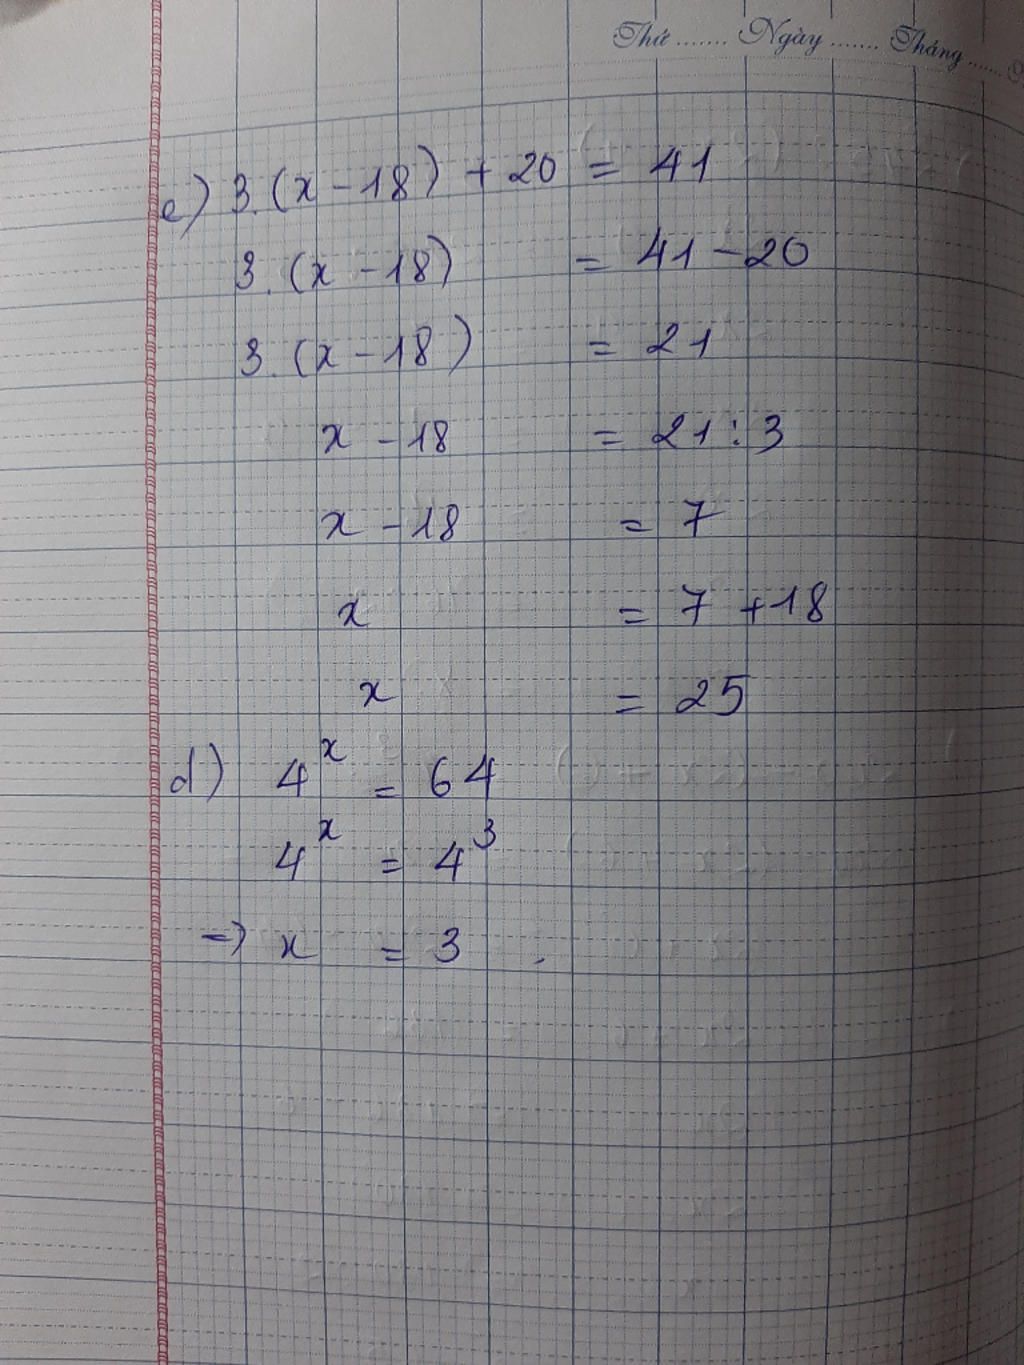 Thứ ....... Ngày ....... Tháng ......
e) 3.(x - 18) + 20 = 41
3.(x - 18) = 41 - 20
3.(x - 18) = 21
x - 18 = 21 : 3
x - 18 = 7
x = 7 + 18
x = 25
d) 4^x = 64
4^x = 4^3
=> x = 3.